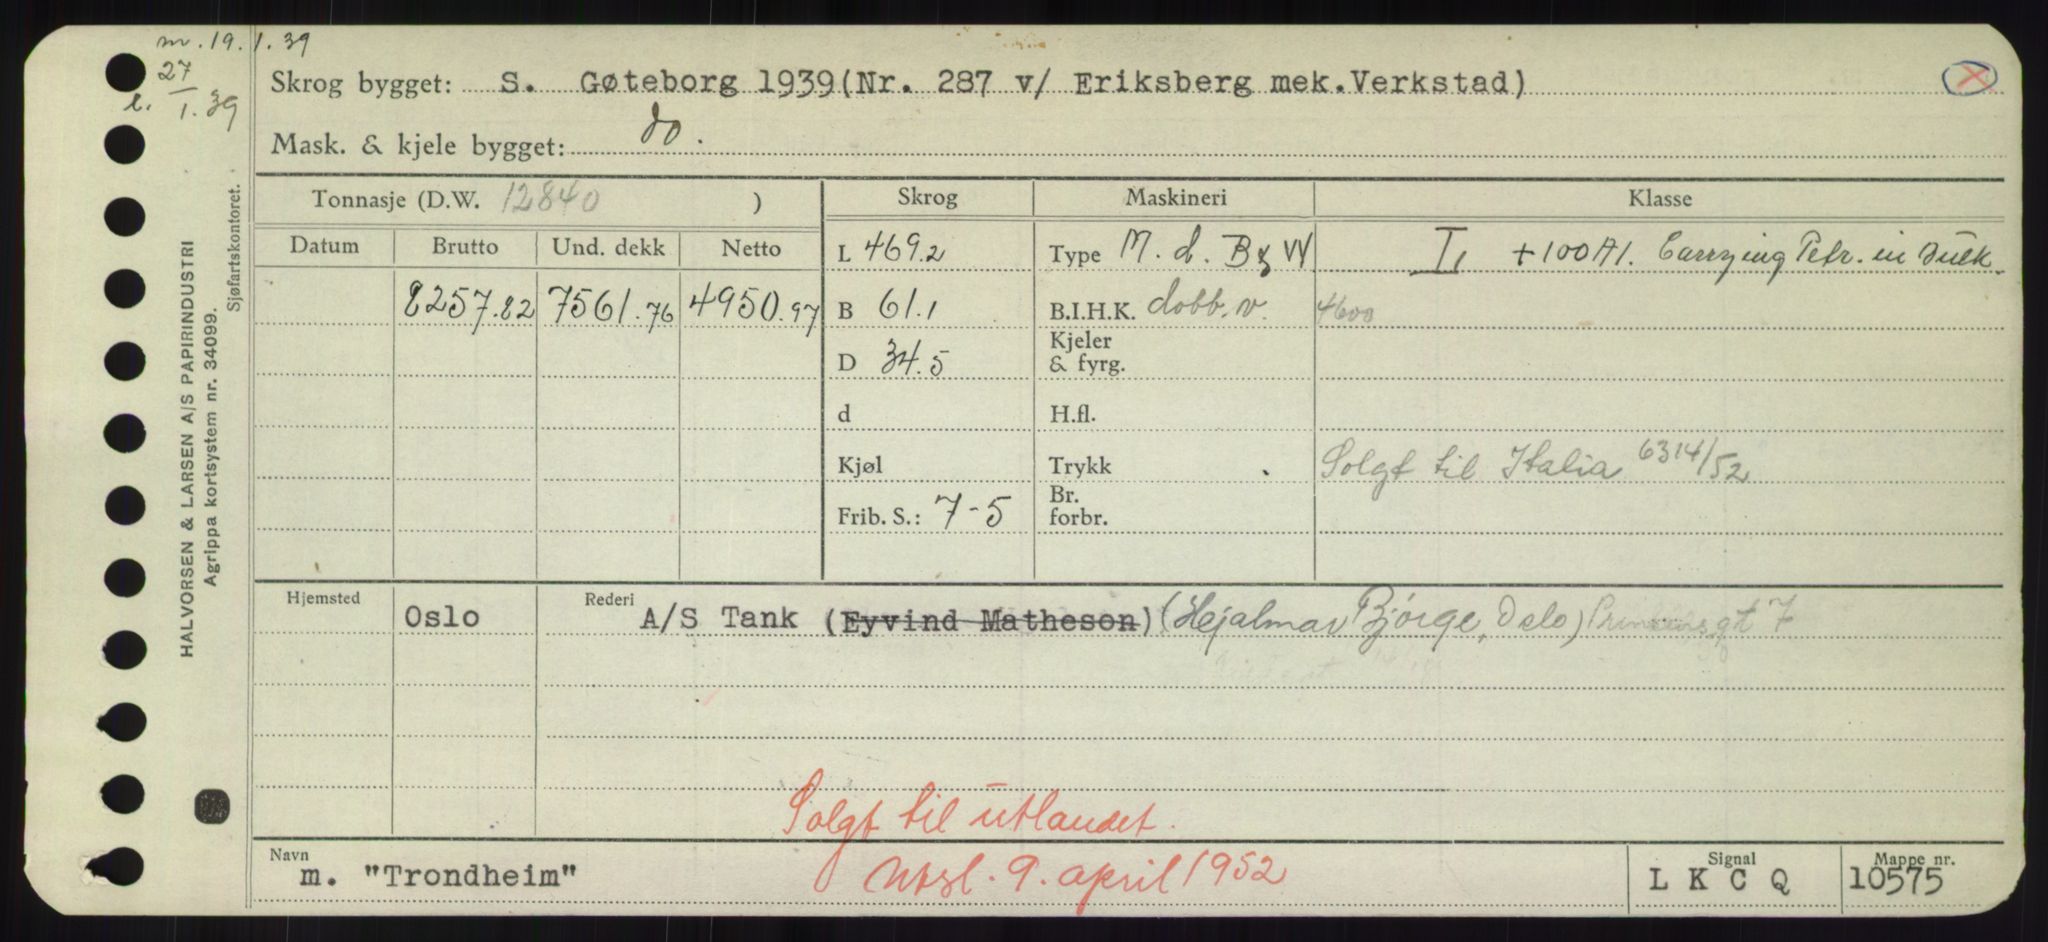 m. 19.1.39
27
l. 1.39
Skrog bygget: S. Gøteborg 1939(Nr. 287 v/ Eriksberg mek.Verkstad)
Mask. & kjele bygget: do.
Tonnasje (D.W. 12840 )
Skrog
Maskineri
Klasse
Datum
Brutto
Und. dekk
Netto
L 469.2
Type M. d. B & W
+100A1. Carrying Petr. in Bulk.
8257.82
7561.76
4950.97
B 61.1
B.I.H.K. dobb. v. 4600
D 34.5
Kjeler
& fyrg.
d
H.fl.
Kjøl
Trykk
Solgt til Italia 6314/52
Frib. S.: 7-5
Br.
forbr.
Hjemsted
Oslo
Rederi
A/S Tank (Eyvind Matheson) (Hjalmar Bjørge, Oslo) Prinsensgt 7
Solgt til utlandet.
Navn
m. "Trondheim"
Utsl. 9. april 1952
Signal
L K C Q
Mappe nr.
10575
HALVORSEN & LARSEN A/S PAPIRINDUSTRI
Agrippa kortsystem nr. 34099.
Sjøfartskontoret.